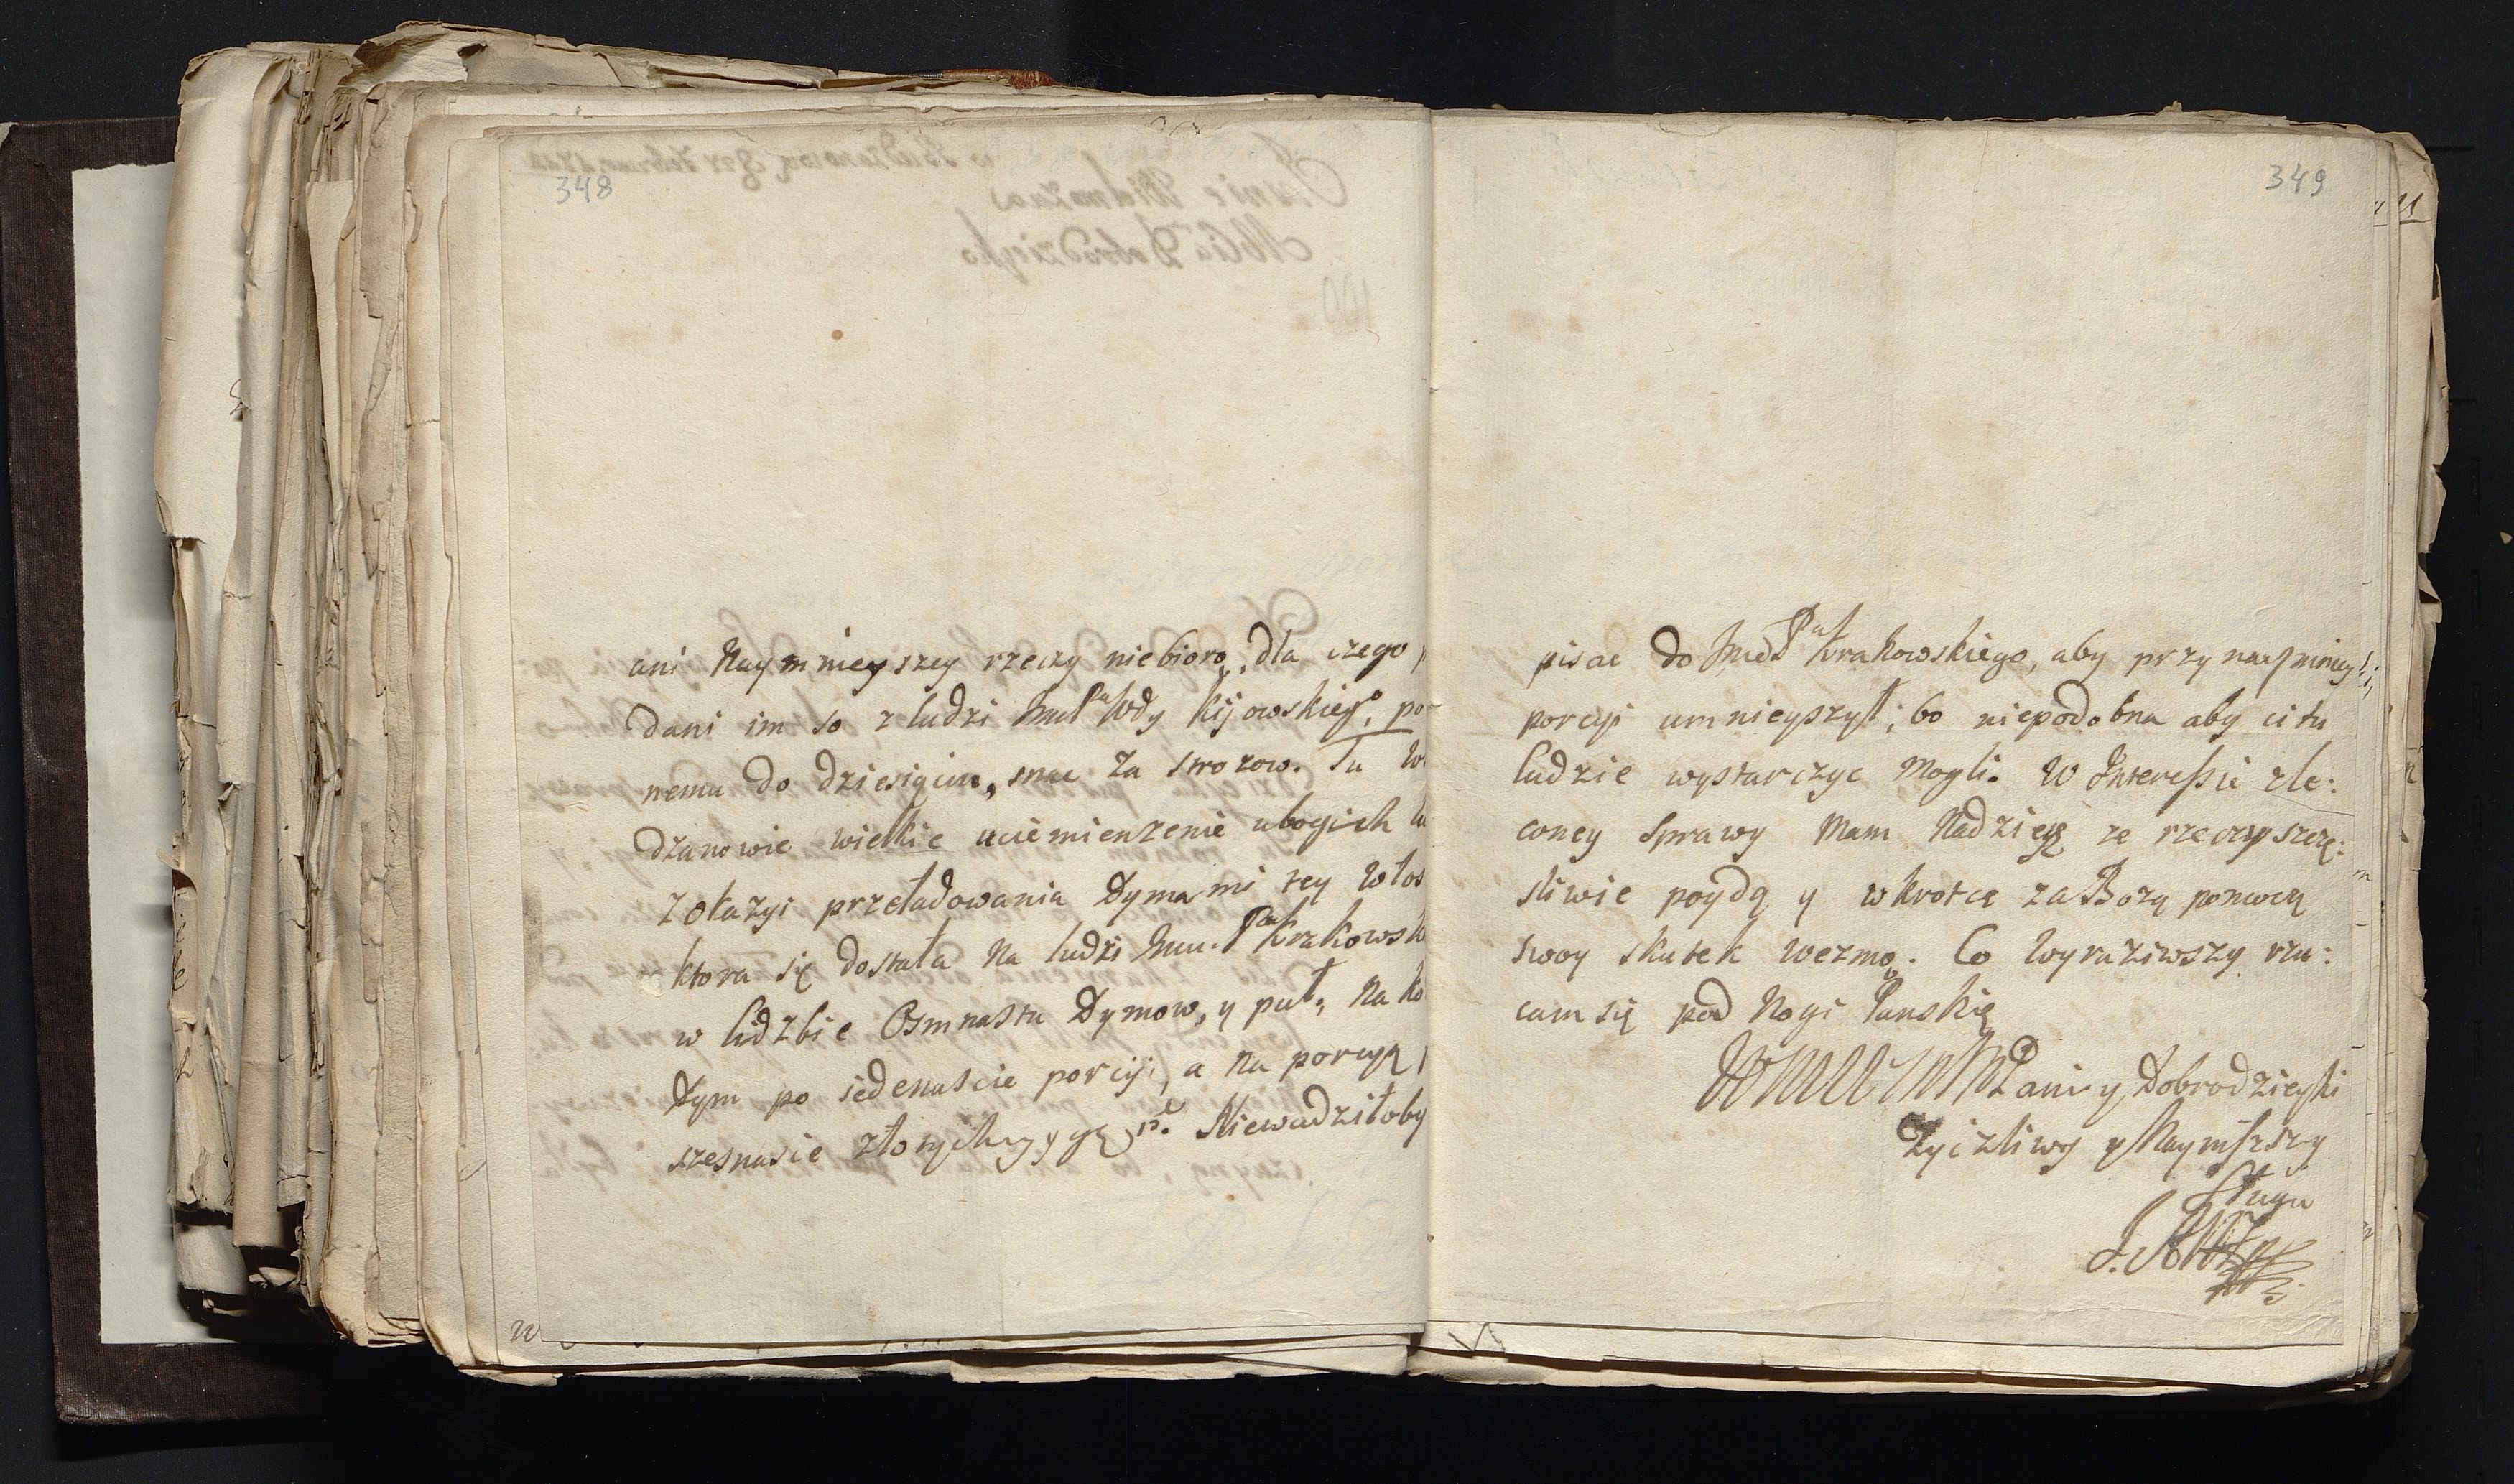 348
ani Naymnieyszey rzeczy niebiorą, dla czego
dani im so z ludzi Jmci Pa Wdy Kijowskiego, po
nemu do dziesiąciu, snac za strozow. Tu
dzanowie wielkie uciemienzenie ubogich
z okazyi przeładowania Dymami tey Włos
ktora się dostała na ludzi Jmci Pa Krakowsk
w lidzbie Osmnastu Dymow, y puł, na ko
Dym po iedenascie porcyi, a na porcyą
szesnascie złotych Niewadziłoby
349
pisac do Jmci Pa Krakowskiego, aby przynaymniey
porcyi umnieyszył; bo niepodobna aby ci tu
ludzie wystarczyc mogli. W Interessie zle:
coney Sprawy mam Nadzieię ze rzeczy szczę:
sliwie poydą y wkrotce za Bozą pomocą
swoy skutek wezmą. Co wyraziwszy rzu:
cam się pod Nogi Panskie
Pani y Dobrodzieyki
Zyczliwy y Naynizszy
Sługa